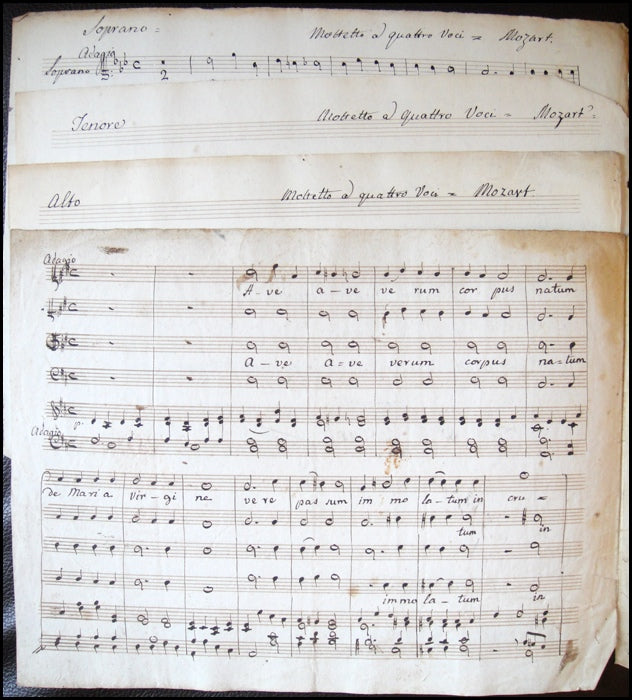 Soprano =
Mottetto a quattro Voci = Mozart.
Adagio
Soprano
2
Tenore
Mottetto a Quattro Voci = Mozart =
Alto
Mottetto a quattro Voci = Mozart
Adagio
A-ve a-ve ve rum cor pus natum
A-ve A=ve verum corpus na=tum
p.
Adagio
de Maria Vir-gi ne vere pas sum im mo la-tum in cru =
tum in
immo la-tum in